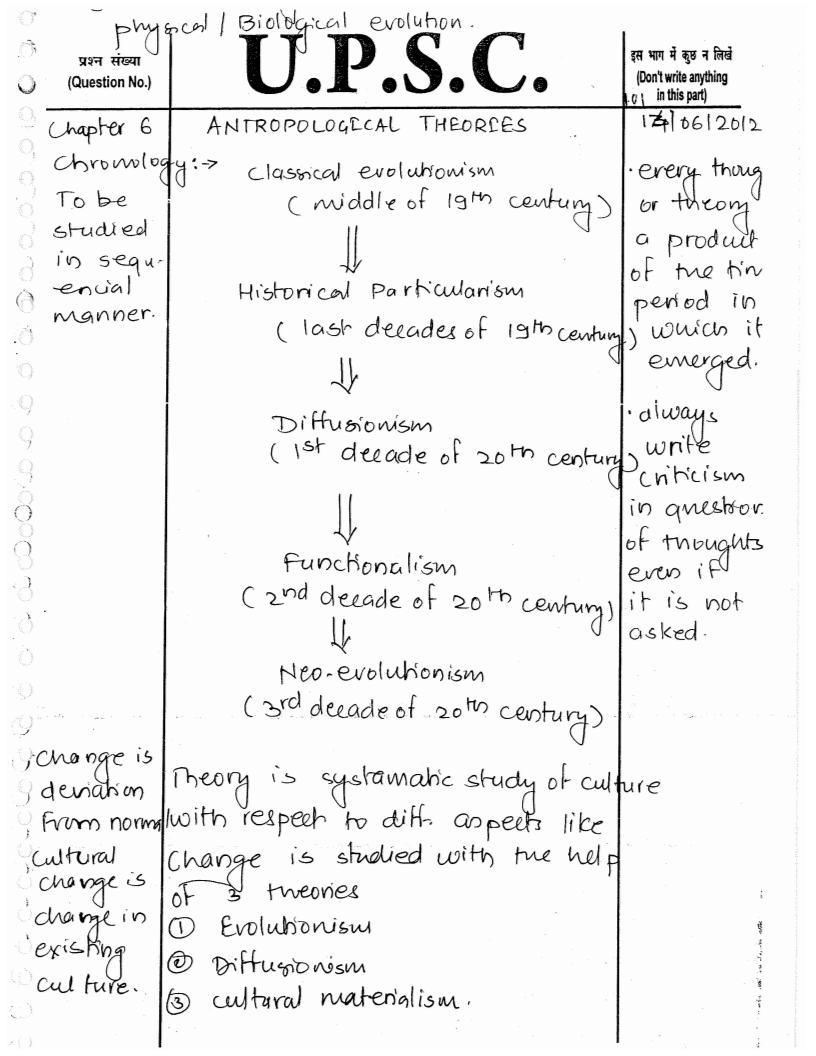 physical / Biological evolution.
प्रश्न संख्या
(Question No.)
U.P.S.C.
इस भाग में कुछ न लिखें
(Don't write anything
in this part)
Chapter 6
ANTROPOLOGICAL THEORIES
06/2012
Chronology:→
To be
studied
in sequ-
encial
manner.
Classical evolutionism
( middle of 19th century)
⇓
Historical Particularism
( last decades of 19th century)
⇓
Diffusionism
( 1st decade of 20th century)
⇓
Functionalism
( 2nd decade of 20th century)
⇓
Neo-evolutionism
( 3rd decade of 20th century)
· every thoug
or theory
a product
of the tim
period in
which it
emerged.
· always
write
criticism
in question
of thoughts
even if
it is not
asked.
Change is
deviation
from normal
Cultural
change is
change in
existing
culture.
Theory is systamatic study of culture
with respect to diff. aspects like
Change is studied with the help
of 3 theories
① Evolutionism
② Diffusionism
③ cultural materialism.